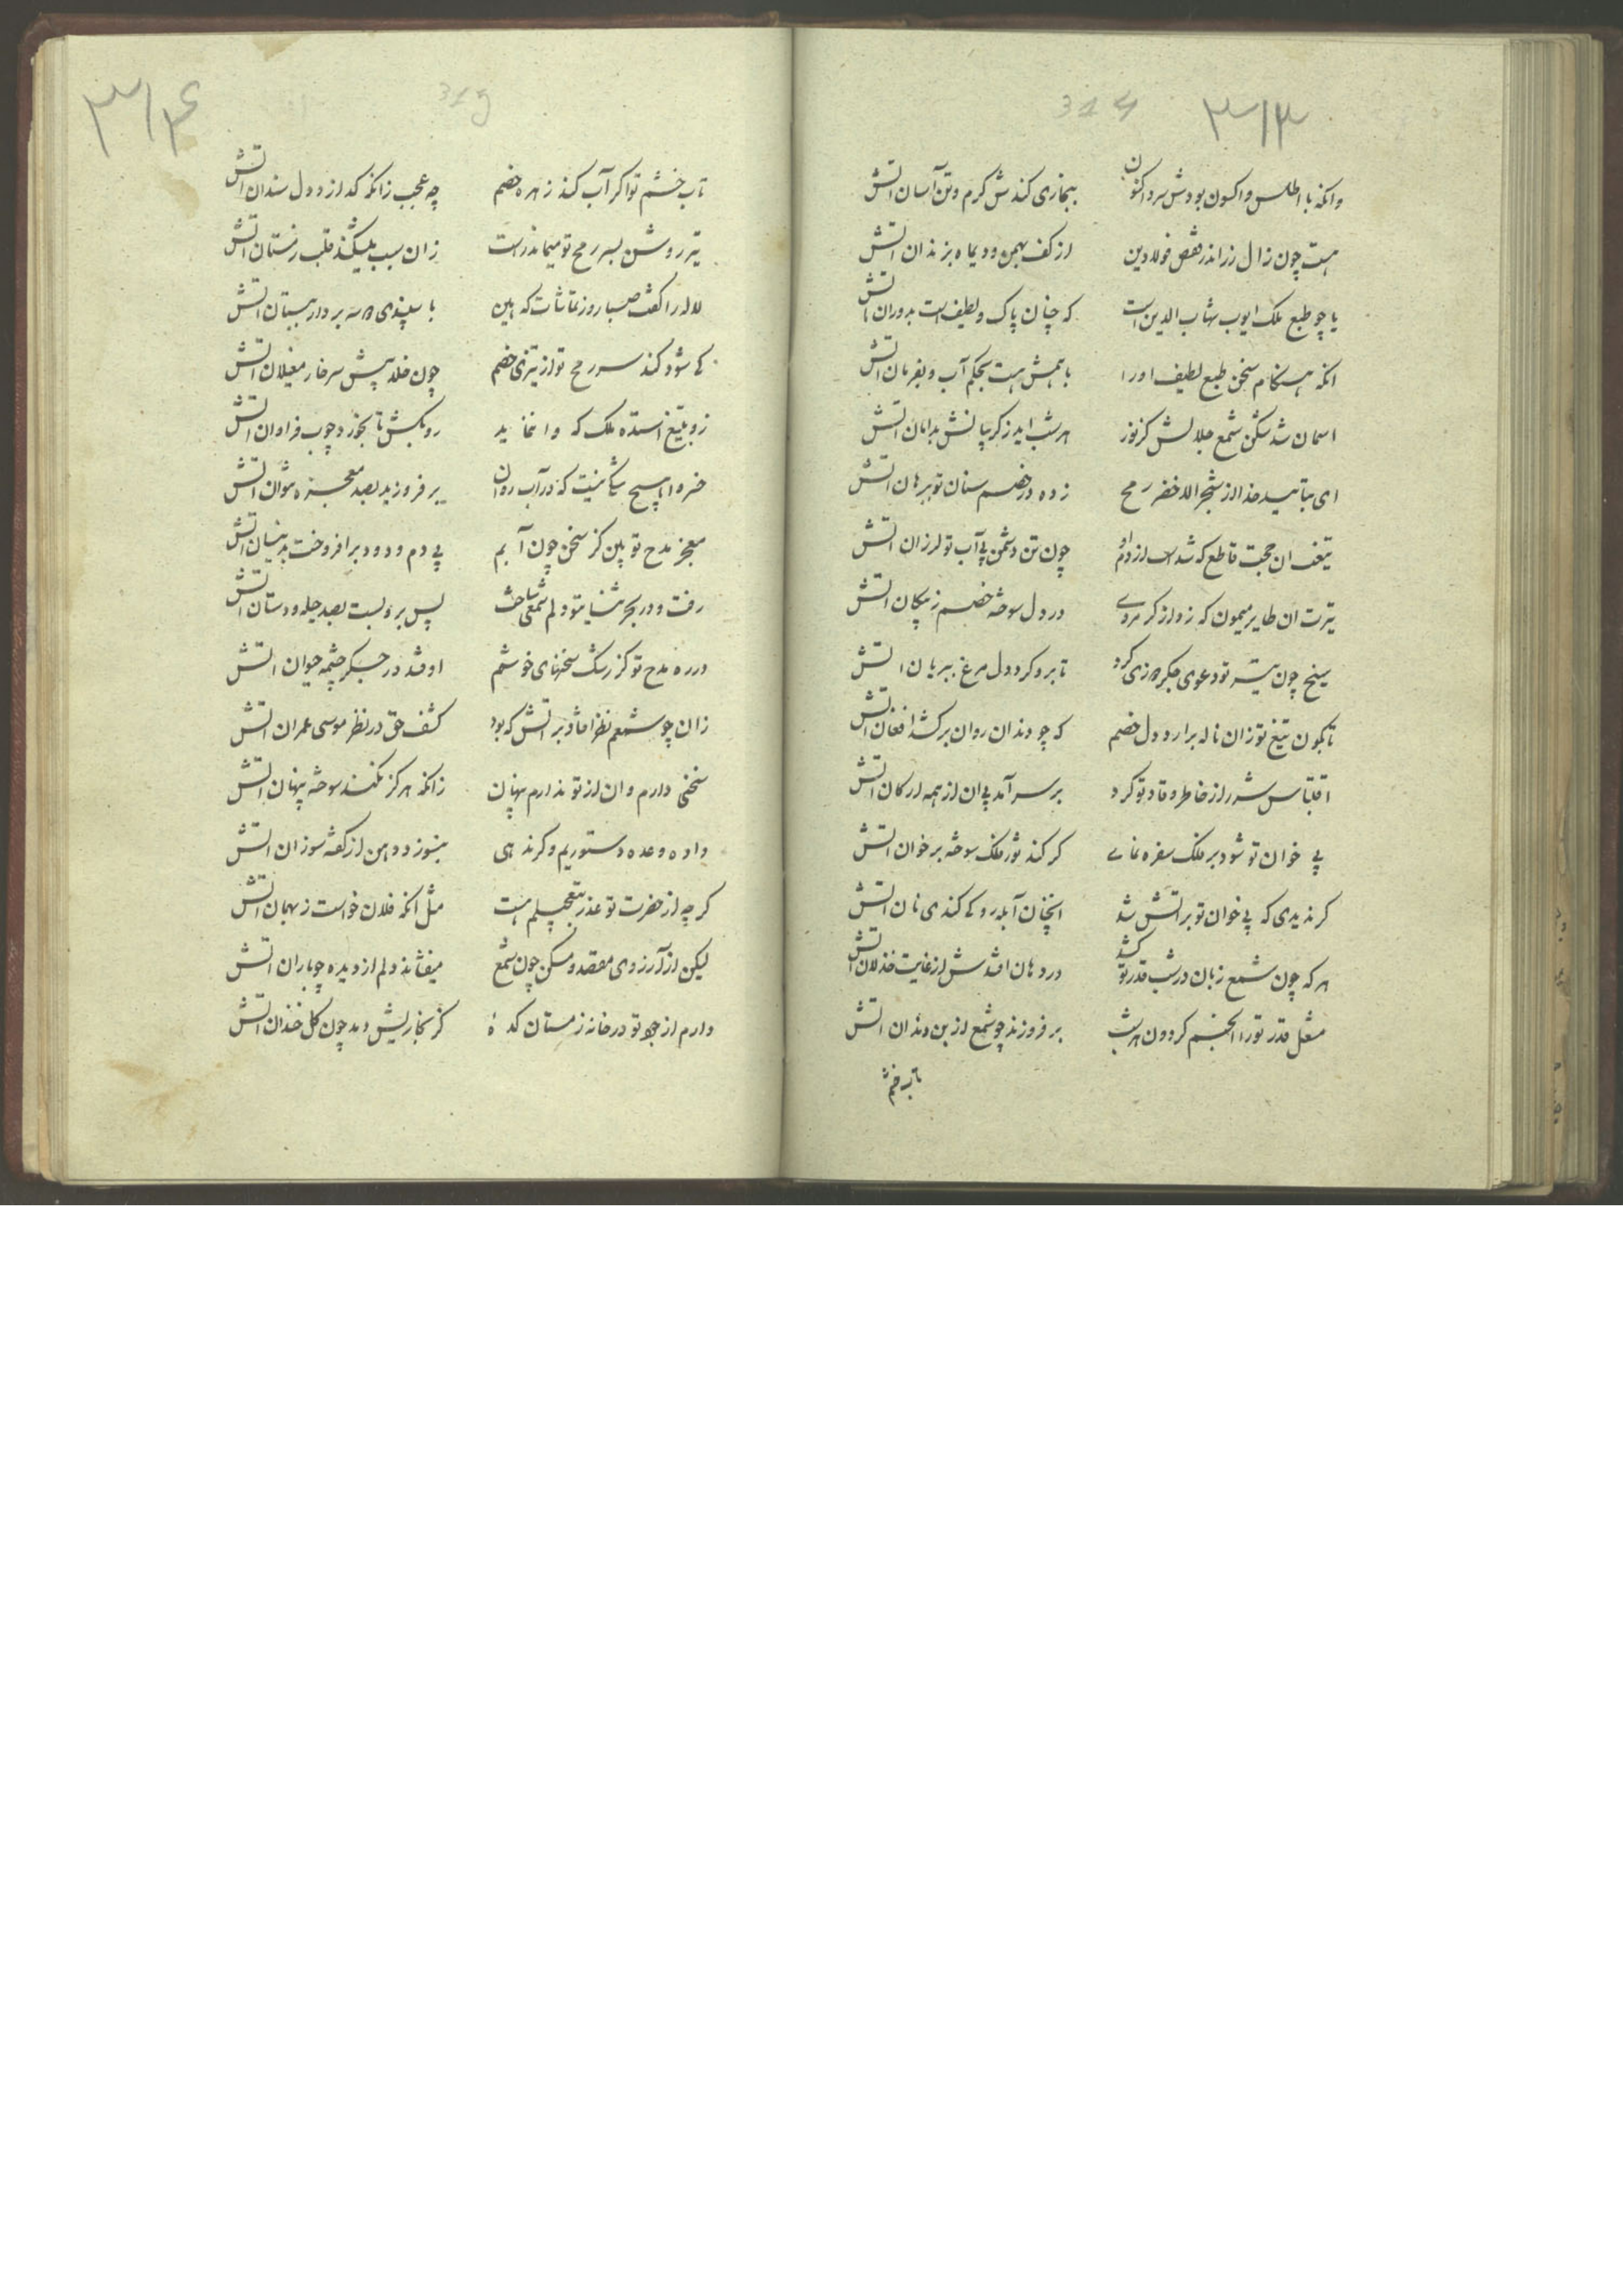 ۳۱۳
314
وانکه با اطلس و اکسون بودش سرد اکنون
بنجاری کندش کرم و تن آسان اتش
هست چون زال زر اندر قفص فولادین
از کف بهمن و دیماه بزندان اتش
یا چو طبع ملک ایوب شهاب الدین است
که چنان پاک و لطیف است بدوران اتش
انکه هنکام سخن طبع لطیف اورا
باهمش هست بحکم آب و بفرمان اتش
اسمان شد لکن شمع جلالش کز نور
هر شب اید ز کریبانش بدامان اتش
ای بتایید خدا از شجر الاخضر رمح
زده در خصم سنان تو ببرهان اتش
تیغت ان حجت قاطع که شداست از دم او
چون تن دشمن بی آب تو لرزان اتش
تیرت ان طایر میمون که زد از کرمروی
در دل سوخته خصم ز پیکان اتش
سیخ چون تیر تو دعوی جکردوزی کرد
تا برو کرد دل مرغ ببریان اتش
تابکون تیغ تو زان ناله برارد دل خصم
که چو دندان روان برکشد افغان اتش
اقتباس شرر از خاطر وقاد تو کرد
بر سر آمد پی ان از همه ارکان اتش
بی خوان تو شود بر فلک سفره نمای
کر کند ثور فلک سوخته بر خوان اتش
کر ندیدی که پی خوان تو بر اتش شد
انچنان آبله رو کی کندی نان اتش
هر که چون شمع زبان در شب قدر تو کشد
در دهان افتدش از غایت خذلان اتش
مشعل قدر تورا انجم کردون هر شب
بر فروزند چو شمع از بن دندان اتش
تاب خشم
۳۱۴
315
تاب خشم تو اکر آب کند زهره خصم
چه عجب زانکه کدازد دل سندان اتش
تیر روشن بسر رمح تو میماند راست
زان سبب میشکند قلب زمستان اتش
لاله را کفت صبا روز تماشات که هین
با سپندی دسه بردار ببستان اتش
کی شود کند سر رمح تو از تیزی خصم
چون خلد پیش سر خار مغیلان اتش
زو بتیغ استده ملک که وا نماید
رو بکش تا بخورد چوب فراوان اتش
خسروا هیچ شکی نیست که در آب روان
بر فروزید بصد معجزه نتوان اتش
معجز مدح تو بین کز سخن چون آبم
بی دم و دود برافروخت بدینسان اتش
رفت و در بحر ثنایتو دلم شمعی ساخت
پس برو بست بصد حیله و دستان اتش
در ره مدح تو کز رشک سخنهای خوشم
اوفتد در جکر چشمه حیوان اتش
زان چو شمعم نظر افتاد بر اتش که بود
کشف حق در نظر موسی عمران اتش
سخنی دارم و ان از تو ندارم پنهان
زانکه هرکز نکند سوخته پنهان اتش
داده وعده دستوریم و کرنه همی
بنسوزد دهن از کفته سوزان اتش
کر چه از حضرت تو عذر بتعجیلم هست
مثل انکه فلان خواست ز بهمان اتش
لیکن از آرزوی مقصد و مسکن چون شمع
میفشاند دلم از دیده چو باران اتش
دارم از جود تو در خانه زمستان کده
کز بخاریش دمد چون کل خندان اتش